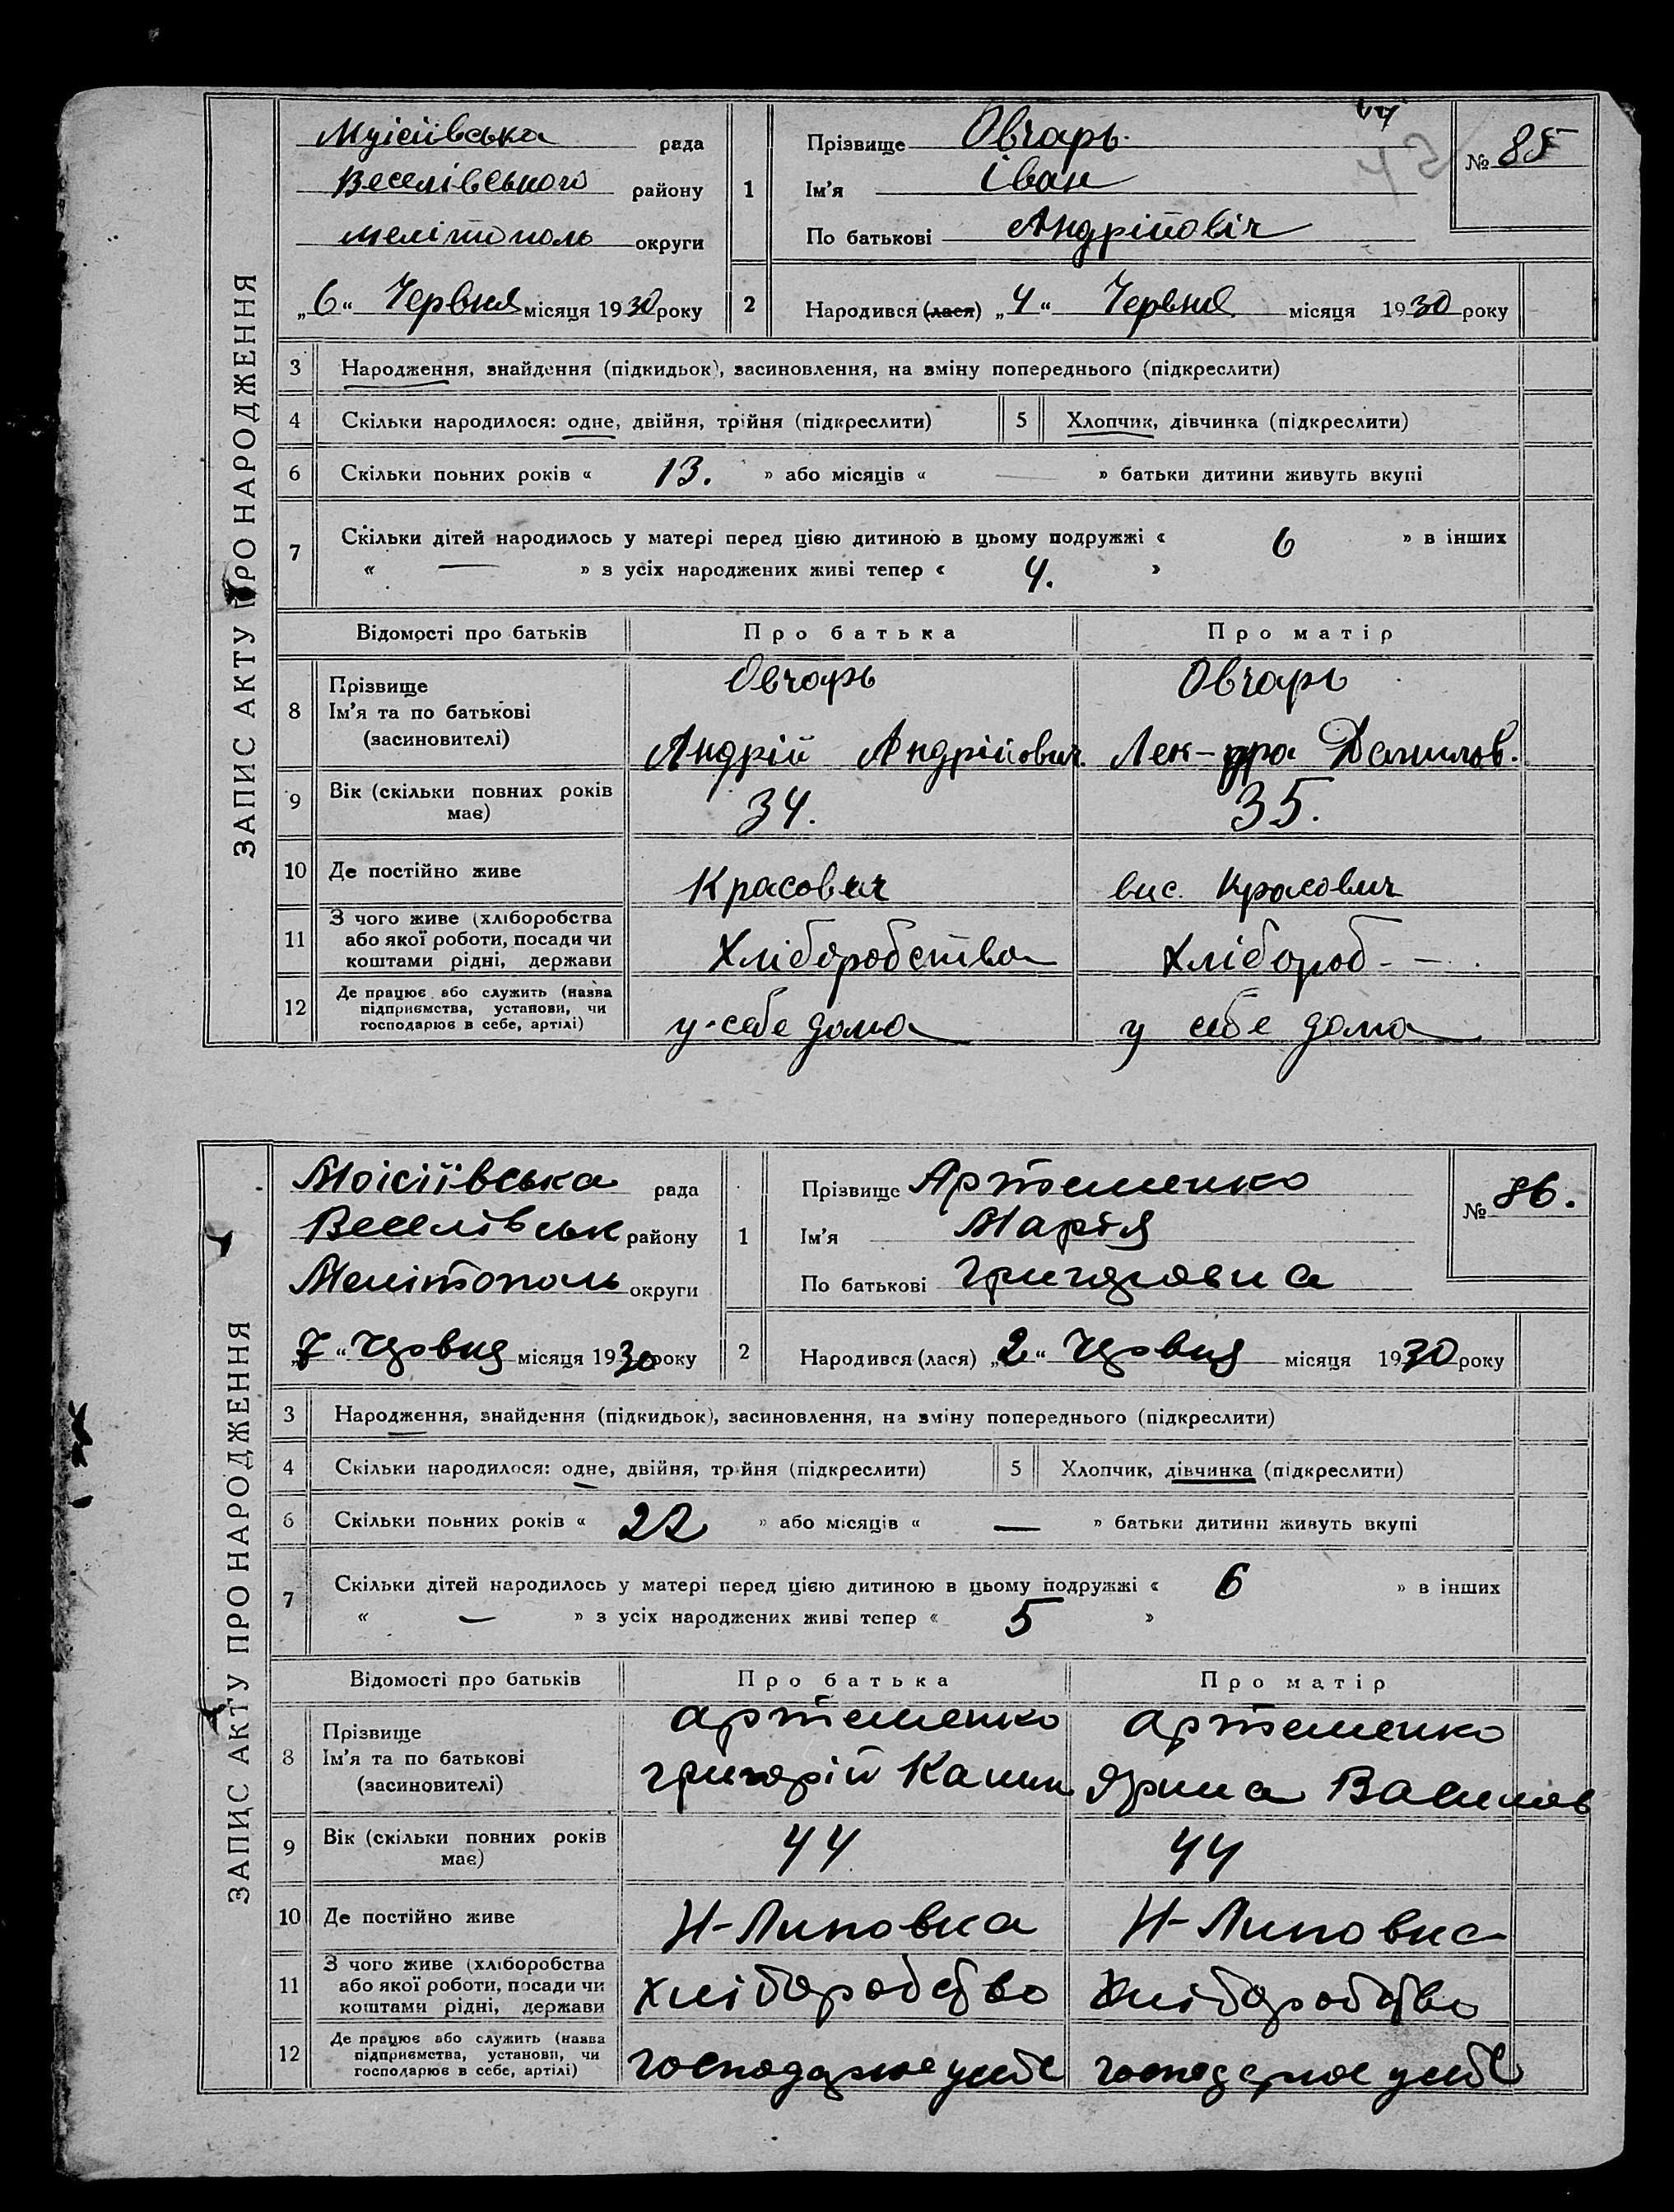 ЗАПИС АКТУ ПРО НАРОДЖЕННЯ
Муісіївська рада
Веселівського району
Мелітополь округи
„6“ Червня місяця 1930 року
1 Прізвище Овчарь
Ім'я Іван
По батькові Андрійовіч
№ 85
2 Народився (лася) „4“ Червня місяця 1930 року
3 Народження, знайдення (підкидьок), засиновлення, на зміну попереднього (підкреслити)
4 Скільки народилося: одне, двійня, трійня (підкреслити) 5 Хлопчик, дівчинка (підкреслити)
6 Скільки повних років « 13. » або місяців « — » батьки дитини живуть вкупі
7 Скільки дітей народилось у матері перед цією дитиною в цьому подружжі « 6 » в інших
« — » з усіх народжених живі тепер « 4. »
Відомості про батьків Про батька Про матір
8 Прізвище Овчарь Овчарь
Ім'я та по батькові
(засиновителі) Андрій Андрійович. Лек-дра Данилов.
9 Вік (скільки повних років має) 34. 35.
10 Де постійно живе Красович вис. Красович
11 З чого живе (хліборобства
або якої роботи, посади чи
коштами рідні, держави Хліборобства Хлібороб- -
12 Де працює або служить (назва
підприємства, установи, чи
господарює в себе, артілі) у себе дома у себе дома
ЗАПИС АКТУ ПРО НАРОДЖЕННЯ
Моісіївська рада
Веселівськ району
Мелітополь округи
„7“ Червня місяця 1930 року
1 Прізвище Артеменко
Ім'я Марія
По батькові Григоровна
№ 86.
2 Народився (лася) „2“ Червня місяця 1930 року
3 Народження, знайдення (підкидьок), засиновлення, на зміну попереднього (підкреслити)
4 Скільки народилося: одне, двійня, трійня (підкреслити) 5 Хлопчик, дівчинка (підкреслити)
6 Скільки повних років « 22 » або місяців « — » батьки дитини живуть вкупі
7 Скільки дітей народилось у матері перед цією дитиною в цьому подружжі « 6 » в інших
« — » з усіх народжених живі тепер « 5 »
Відомості про батьків Про батька Про матір
8 Прізвище Артеменко Артеменко
Ім'я та по батькові Григорій Ярина Василов
(засиновителі)
9 Вік (скільки повних років має) 44 44
10 Де постійно живе Н-Липовка Н-Липовка
11 З чого живе (хліборобства
або якої роботи, посади чи
коштами рідні, держави хліборобство хліборобство
12 Де працює або служить (назва
підприємства, установи, чи
господарює в себе, артілі) господарює усебе господарює усебе